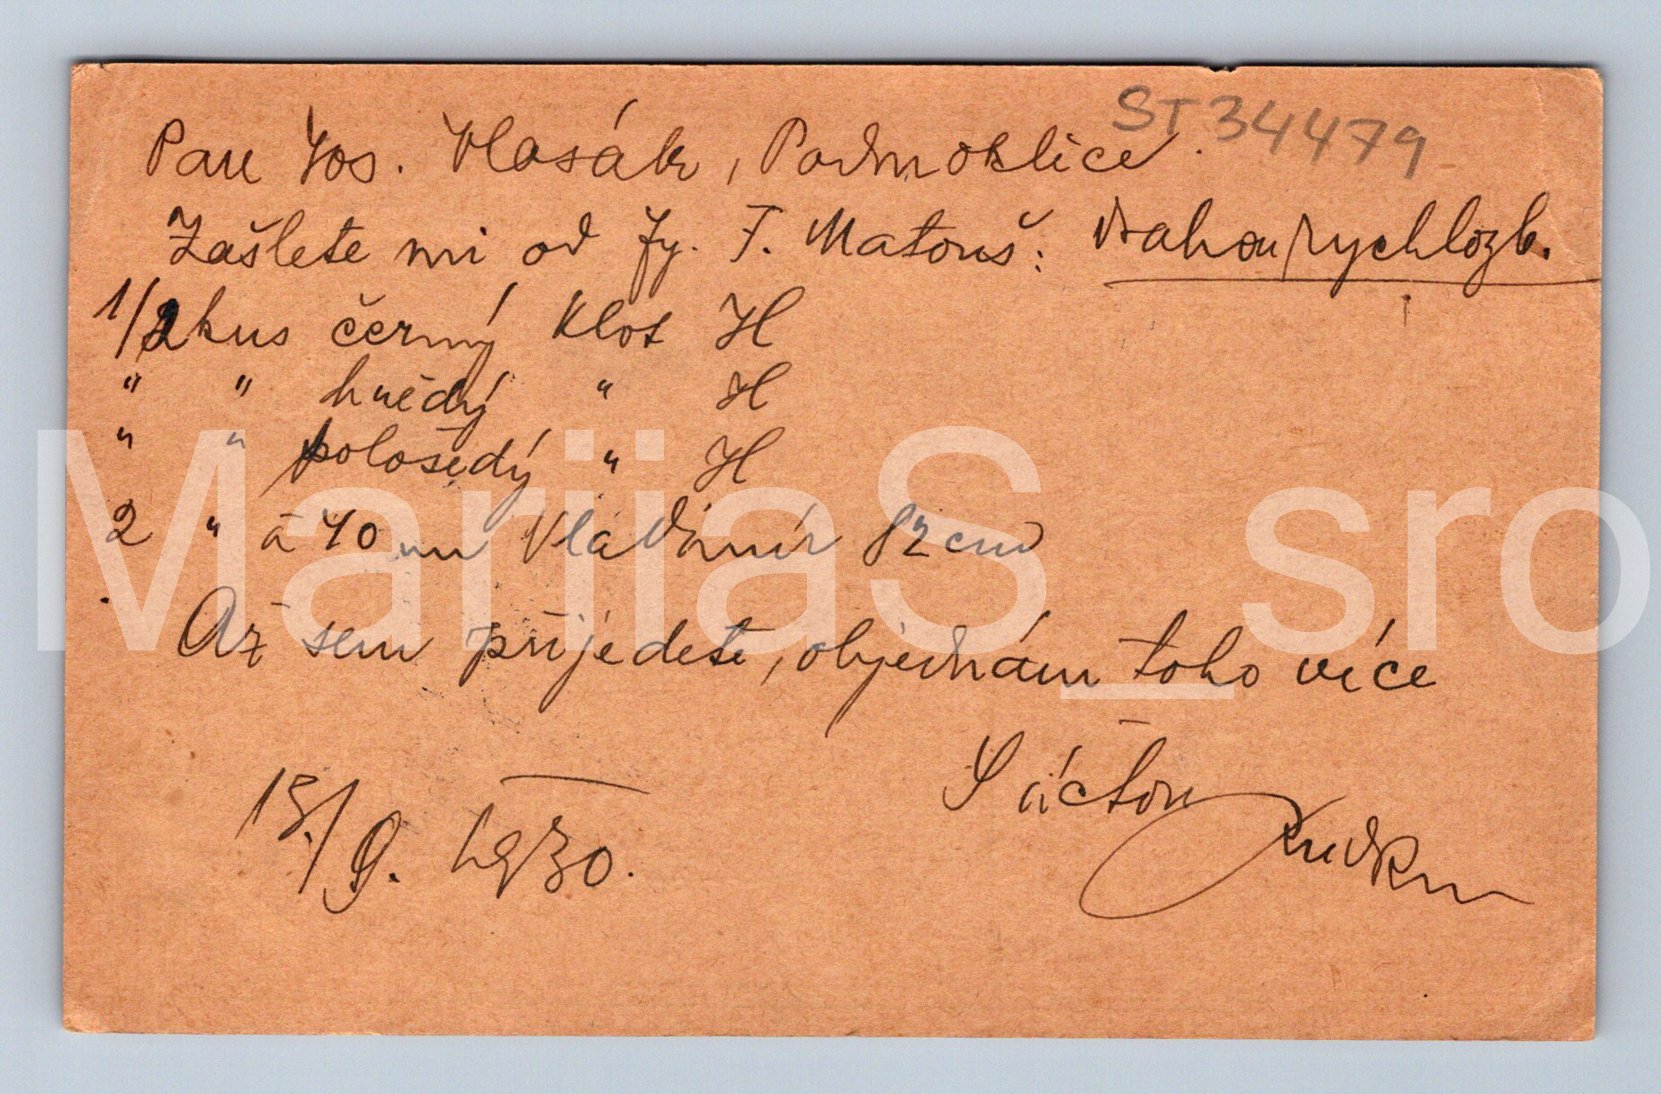 ST 34479
Pan Jos. Vlasák, Podmoklice.
Zašlete mi od fy. F. Matouš: drahou rychlozb.
1/2 kus černý Klot H
" " hnědý " H
" " pološedý " H
2 " à 40 m Vladimír 82 cm
Až sem přijedete, objednám toho více
S úctou
15./9. 1930.
MariiaS_sro